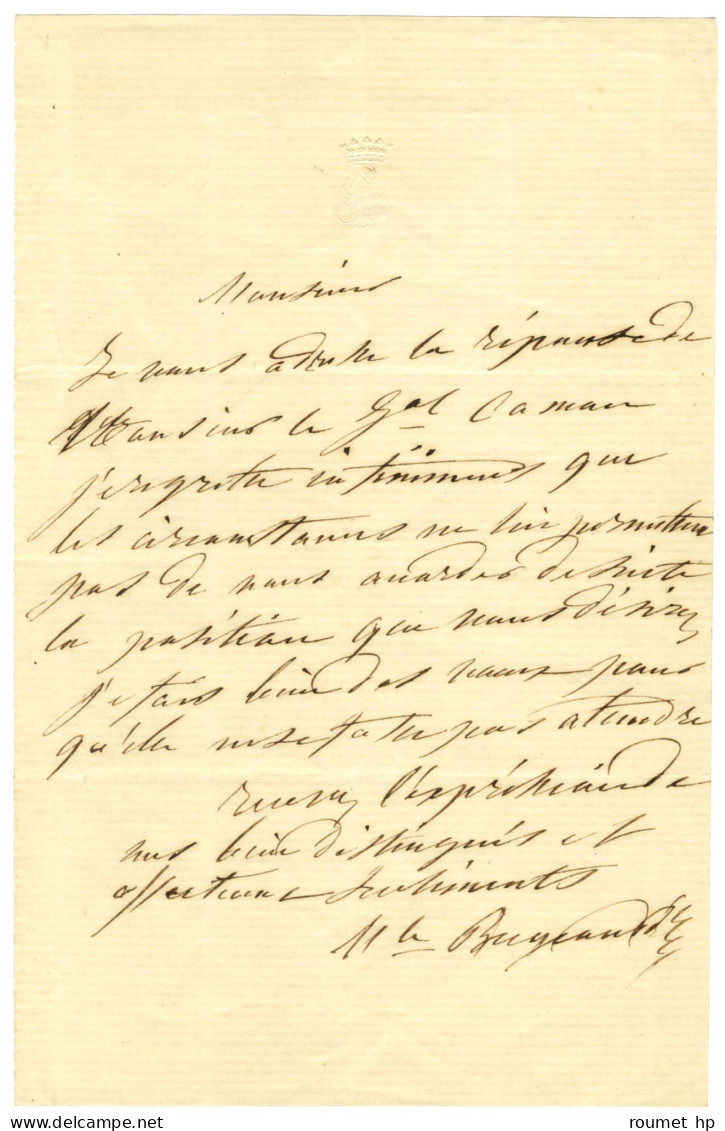 Monsieur
Je vous adresse la réponse de
Monsieur le Gal Camou
j'e regrette infiniment que
les circonstances ne lui permettent
pas de vous accorder de suite
la position que vous désirez
je fais bien des vœux pour
qu'elle ne se fasse pas attendre
recevez l'expression de
mes bien distingués et
affectueux sentiments
Mle Bugeaud
roumet hp